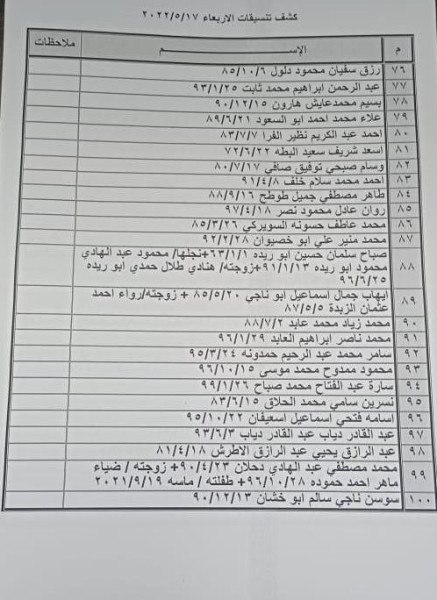 كشف تنسيقات الاربعاء ٢٠٢٢/٥/١٧
م الإســـم ملاحظات
٧٦ رزق سفيان محمود دلول ٨٥/١٠/٦
٧٧ عبد الرحمن ابراهيم محمد ثابت ٩٣/١/٢٥
٧٨ بسيم محمدعايش هارون ٩٠/١٢/١٥
٧٩ علاء محمد احمد ابو السعود ٨٩/٦/٢١
٨٠ احمد عبد الكريم نظير الفرا ٨٣/٧/٧
٨١ اسعد شريف سعيد البطه ٧٢/٦/٢٢
٨٢ وسام صبحي توفيق صافي ٨٠/٧/١٧
٨٣ احمد محمد سلام خلف ٩١/٤/٨
٨٤ طاهر مصطفي جميل طوطح ٨٨/٩/١٦
٨٥ روان عادل محمود نصر ٩٧/٤/١٨
٨٦ محمد عاطف حسونه السويركي ٨٥/٣/٢٦
٨٧ محمد منير علي ابو خصيوان ٩٢/٢/٢٨
٨٨ صباح سلمان حسين ابو ريده ٦٣/١/١+نجلها/ محمود عبد الهادي
محمود ابو ريده ٩١/١/١٣+زوجته/ هنادي طلال حمدي ابو ريده
٩٦/٦/٢٥
٨٩ ايهاب جمال اسماعيل ابو ناجي ٨٥/٥/٢٠ + زوجته/رواء احمد
عثمان الزبدة ٨٧/٥/٥
٩٠ محمد زياد محمد عابد ٨٨/٧/٢
٩١ محمد ناصر ابراهيم العابد ٩٦/١/٢٩
٩٢ سامر محمد عبد الرحيم حمدونه ٩٥/٣/٢٤
٩٣ محمود ممدوح محمد موسى ٩٦/١٠/١٥
٩٤ سارة عبد الفتاح محمد صباح ٩٩/١/٢٦
٩٥ نسرين سامي محمد الحلاق ٨٣/٦/١٥
٩٦ اسامه فتحي اسماعيل اسعيفان ٩٥/١٠/٢٢
٩٧ عبد القادر دياب عبد القادر دياب ٩٣/٦/٣
٩٨ عبد الرازق يحيي عبد الرازق الاطرش ٨١/٤/١٨
٩٩ محمد مصطفي عبد الهادي دحلان ٩٠/٤/٢٣+ زوجته / ضياء
ماهر احمد حموده ٩٦/١٠/٢٨+ طفلته / ماسه ٢٠٢١/٩/١٩
١٠٠ سوسن ناجي سالم ابو خشان ٩٠/١٢/١٣